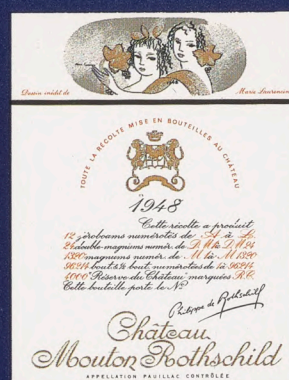 Dessin inédit de Marie Laurencin
TOUTE LA RÉCOLTE MISE EN BOUTEILLES AU CHÂTEAU
1948
Cette récolte a produit
12 jéroboams numérotés de A à L
24 double-magnums numér. de D.M1 à D.M24
1320 magnums numér. de M1 à M1320
96214 bout. & ½ bout. numérotées de 1 à 96214
4000 "Réserve du Château" marquées R.C.
Cette bouteille porte le No
Philippe de Rothschild
Château
Mouton Rothschild
APPELLATION PAUILLAC CONTRÔLÉE